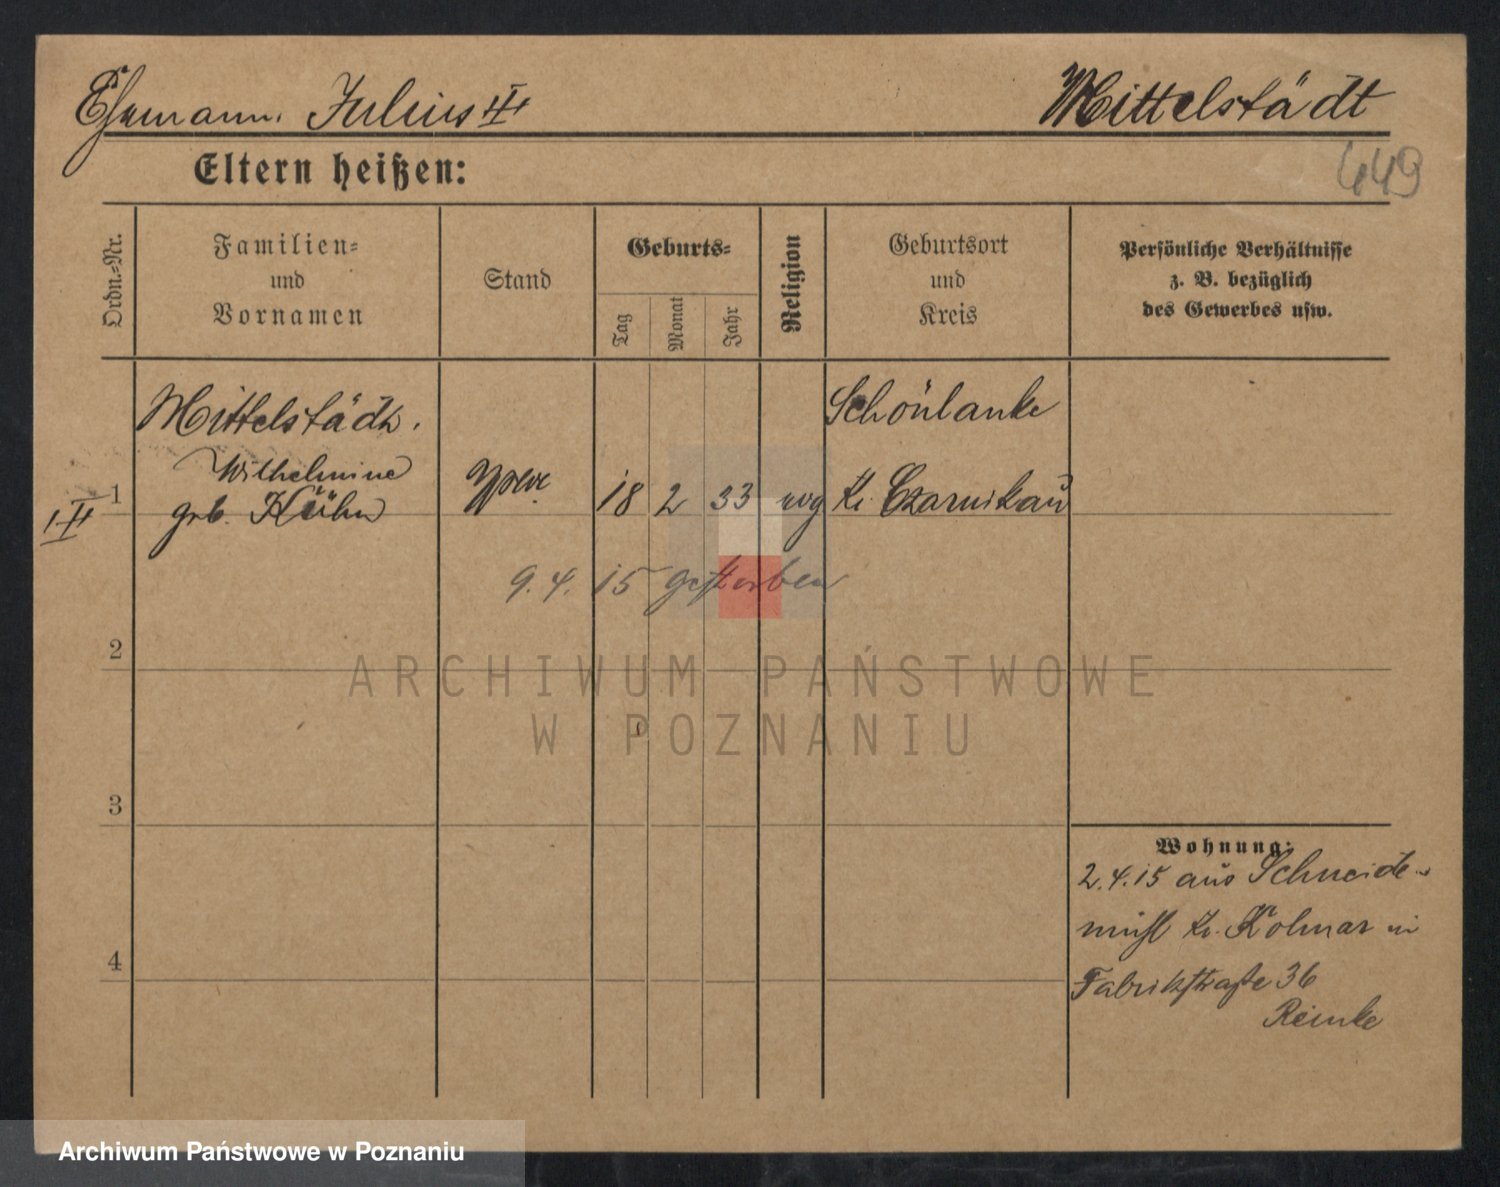 Ehemann Julius ✝ Mittelstädt
449
Eltern heißen:
Ordn.-Nr.
Familien-
und
Vornamen
Stand
Geburts-
Tag
Monat
Jahr
Religion
Geburtsort
und
Kreis
Persönliche Verhältnisse
z. B. bezüglich
des Gewerbes usw.
Mittelstädt. Schönlanke
Wilhelmine
1 geb. Kühn Wwe. 18 2 33 evg Kr. Czarnikau
9.4.15 gestorben
2
3
4
Wohnung:
2.4.15 aus Schneide-
mühl Kr. Kolmar in
Fabrikstraße 36
Reinke
ARCHIWUM PAŃSTWOWE
W POZNANIU
Archiwum Państwowe w Poznaniu